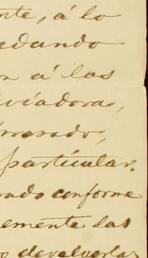 nte, á lo
edando
n á las
viadora,
inserado,
particular.
ando conforme
emente las
o devolverla